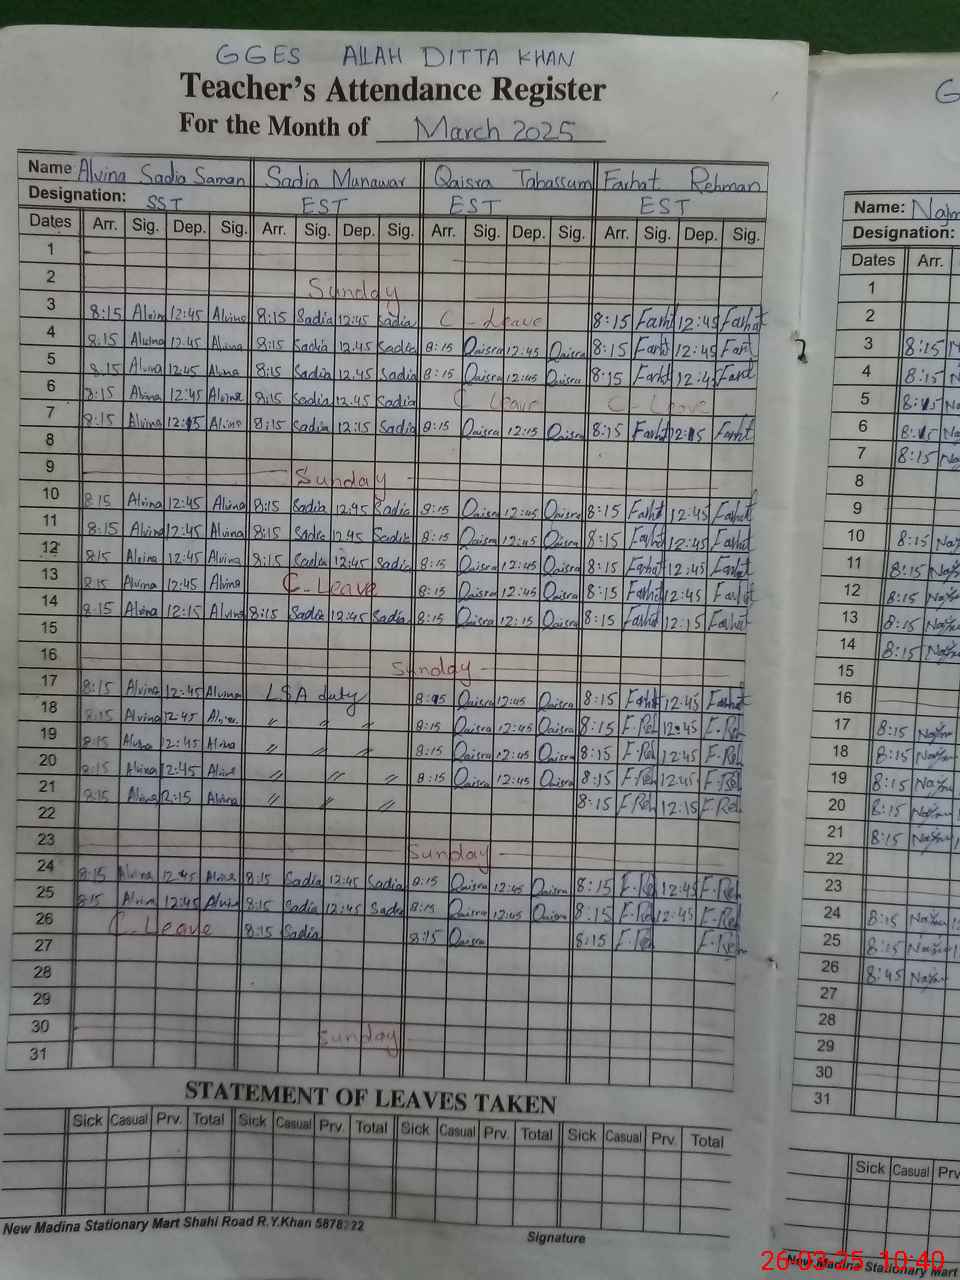 GGES ALLAH DITTA KHAN
Teacher's Attendance Register
For the Month of March 2025
Name Alvina Sadia Saman Sadia Munawar Qaisra Tabassum Farhat Rehman
Designation: SST EST EST EST
Dates Arr. Sig. Dep. Sig. Arr. Sig. Dep. Sig. Arr. Sig. Dep. Sig. Arr. Sig. Dep. Sig.
1
2 Sunday
3 8:15 Alvina 12:45 Alvina 8:15 Sadia 12:45 Sadia C-Leave 8:15 Farht 12:45 Farhat
4 8:15 Alvina 12:45 Alvina 8:15 Sadia 12:45 Sadia 8:15 Qaisra 12:45 Qaisra 8:15 Farht 12:45 Farht
5 8:15 Alvina 12:45 Alvina 8:15 Sadia 12:45 Sadia 8:15 Qaisra 12:45 Qaisra 8:15 Farht 12:45 Farht
6 8:15 Alvina 12:45 Alvina 8:15 Sadia 12:45 Sadia C Leave C-Leave
7 8:15 Alvina 12:15 Alvina 8:15 Sadia 12:15 Sadia 8:15 Qaisra 12:15 Qaisra 8:15 Farht 12:15 Farht
8
9 Sunday
10 8:15 Alvina 12:45 Alvina 8:15 Sadia 12:45 Sadia 8:15 Qaisra 12:45 Qaisra 8:15 Farht 12:45 Farhat
11 8:15 Alvina 12:45 Alvina 8:15 Sadia 12:45 Sadia 8:15 Qaisra 12:45 Qaisra 8:15 Farhat 12:45 Farhat
12 8:15 Alvina 12:45 Alvina 8:15 Sadia 12:45 Sadia 8:15 Qaisra 12:45 Qaisra 8:15 Farhat 12:45 Farhat
13 8:15 Alvina 12:45 Alvina C-Leave 8:15 Qaisra 12:45 Qaisra 8:15 Farhat 12:45 Farhat
14 8:15 Alvina 12:15 Alvina 8:15 Sadia 12:45 Sadia 8:15 Qaisra 12:15 Qaisra 8:15 Farhat 12:15 Farhat
15
16 Sunday
17 8:15 Alvina 12:45 Alvina LSA duty 8:15 Qaisra 12:45 Qaisra 8:15 Farht 12:45 Farhat
18 8:15 Alvina 12:45 Alvina " " " 8:15 Qaisra 12:45 Qaisra 8:15 F.Reh 12:45 F.Reh
19 8:15 Alvina 12:45 Alvina " " " 8:15 Qaisra 12:45 Qaisra 8:15 F.Reh 12:45 F.Reh
20 8:15 Alvina 12:45 Alvina " " " 8:15 Qaisra 12:45 Qaisra 8:15 F.Reh 12:45 F.Reh
21 8:15 Alvina 12:15 Alvina " " " 8:15 F.Reh 12:15 F.Reh
22
23 Sunday
24 8:15 Alvina 12:45 Alvina 8:15 Sadia 12:45 Sadia 8:15 Qaisra 12:45 Qaisra 8:15 F.Reh 12:45 F.Reh
25 8:15 Alvina 12:45 Alvina 8:15 Sadia 12:45 Sadia 8:15 Qaisra 12:45 Qaisra 8:15 F.Reh 12:45 F.Reh
26 C.Leave 8:15 Sadia 8:15 Qaisra 8:15 F.Reh F.Reh
27
28
29
30 Sunday
31
STATEMENT OF LEAVES TAKEN
Sick Casual Prv. Total Sick Casual Prv. Total Sick Casual Prv. Total Sick Casual Prv. Total
New Madina Stationary Mart Shahi Road R.Y.Khan
Signature
G
Name:
Designation:
Dates Arr.
1
2
3 8:15
4 8:15
5 8:15
6 8:15
7 8:15
8
9
10 8:15
11 8:15
12 8:15
13 8:15
14 8:15
15
16
17 8:15
18 8:15
19 8:15
20 8:15
21 8:15
22
23
24 8:15
25 8:15
26 8:45
27
28
29
30
31
Sick Casual Prv
New Madina Stationary Mart
26-03-25 10:40